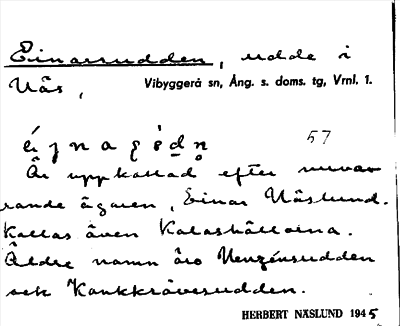 Einarsudden, udde i
Näs, Vibyggerå sn, Ång. s. doms. tg, Vrnl. 1.
57
Är uppkallad efter nuva-
rande ägaren, Einar Näslund.
Kallas även Kalashällorna.
Äldre namn äro Nenzénsudden
och Kankkråvesudden.
HERBERT NÄSLUND 1945